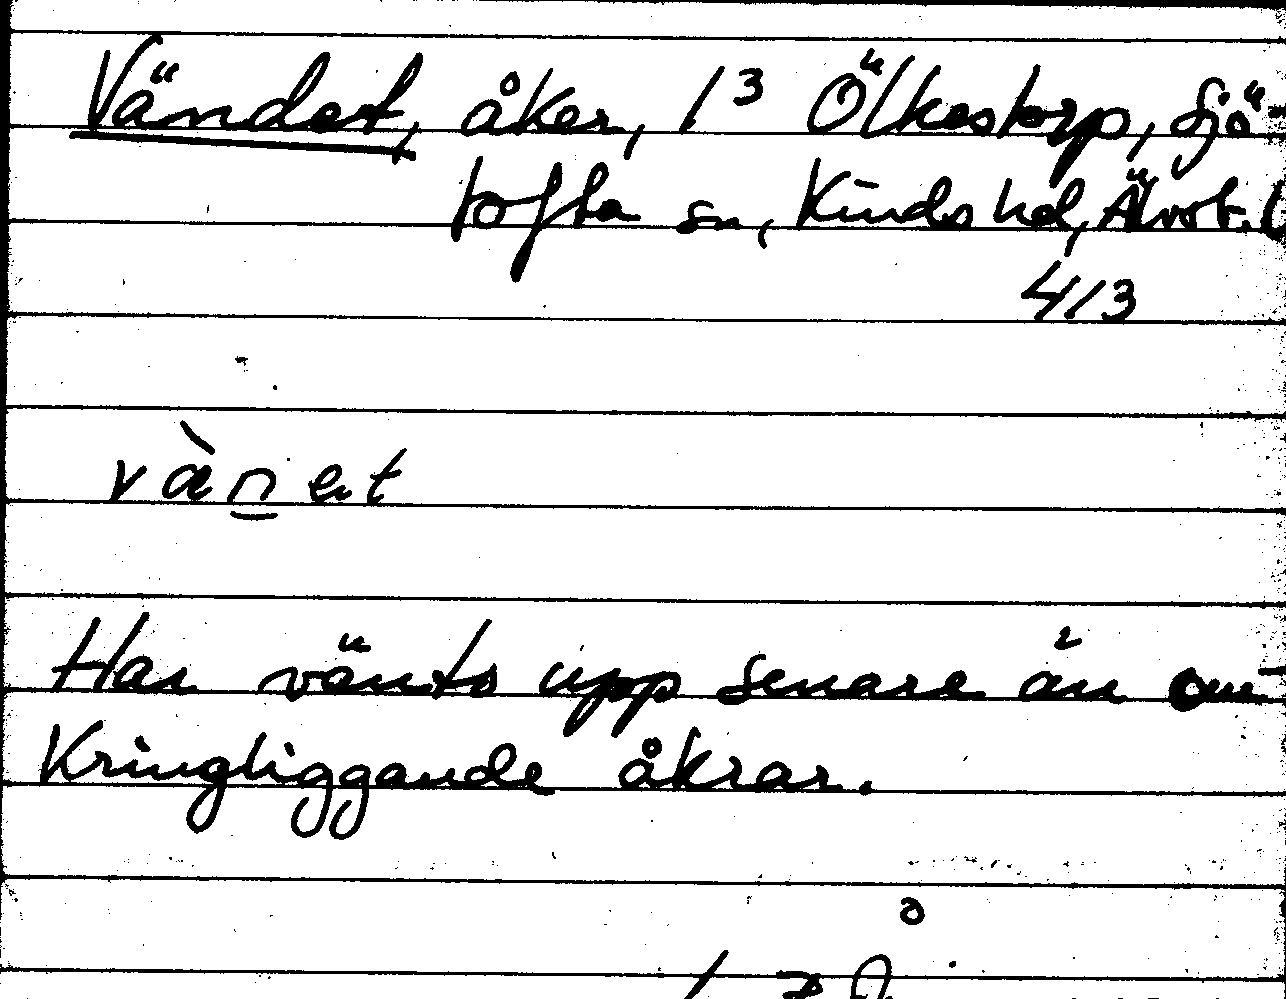 Vändet, åker, 1³ Ölkestorp, Sjö-
tofta sn, Kinds hd, Älvsb. l
4/3
vä̀n̠et
Har vänts upp senare än om-
kringliggande åkrar.